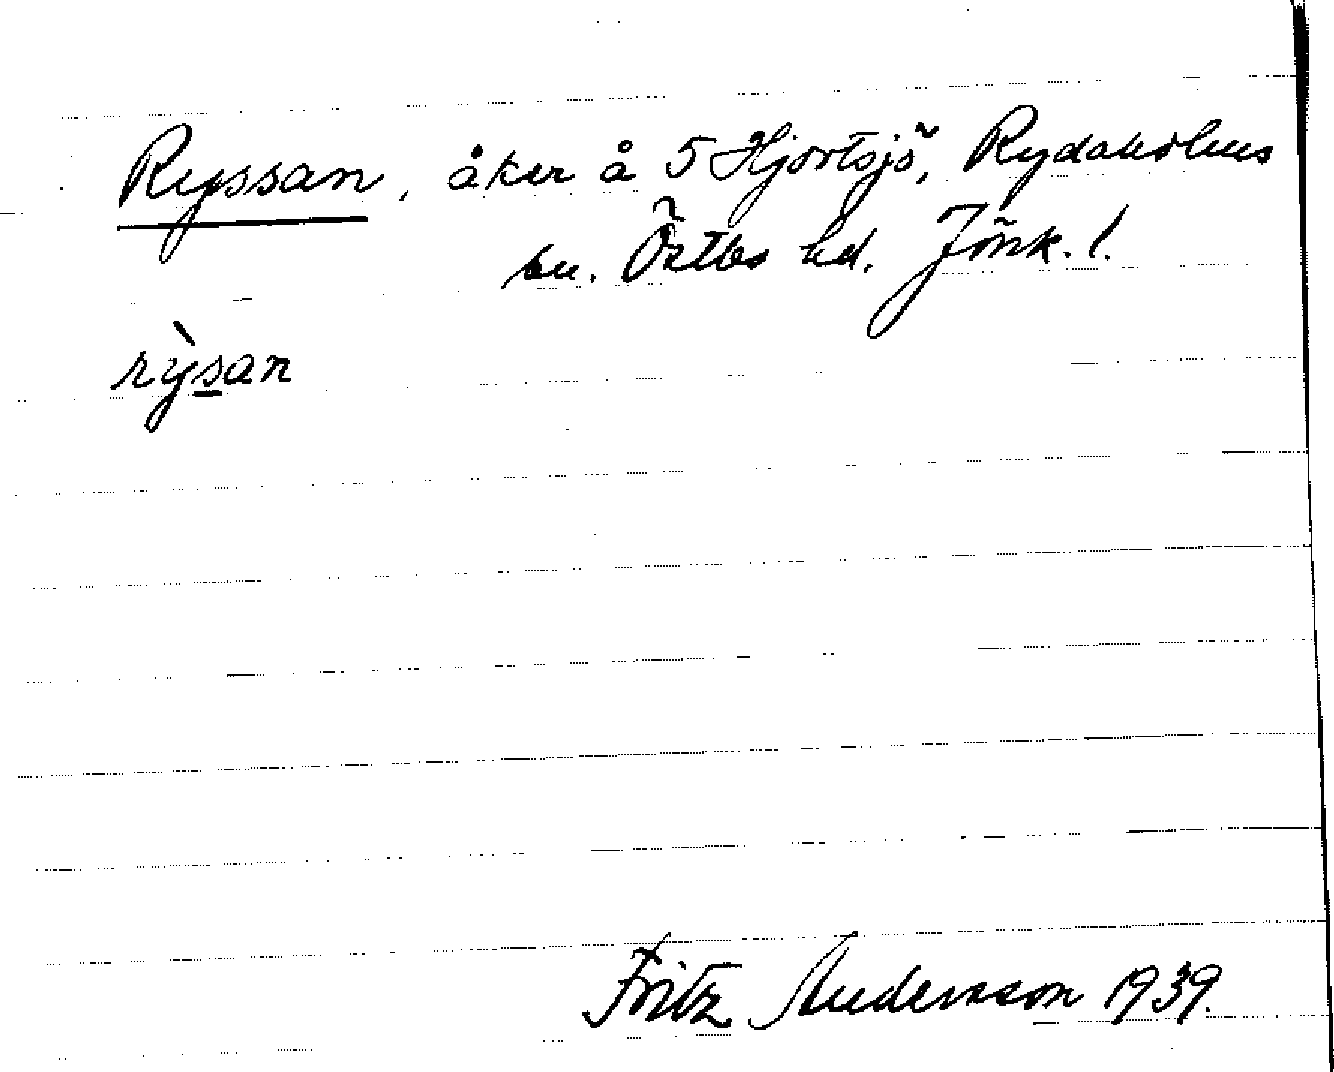 Ryssan, åker å 5 Hjortsjö, Rydaholms
sn. Östbo hd. Jönk. l.
rỳs̲an
Fritz Andersson 1939.